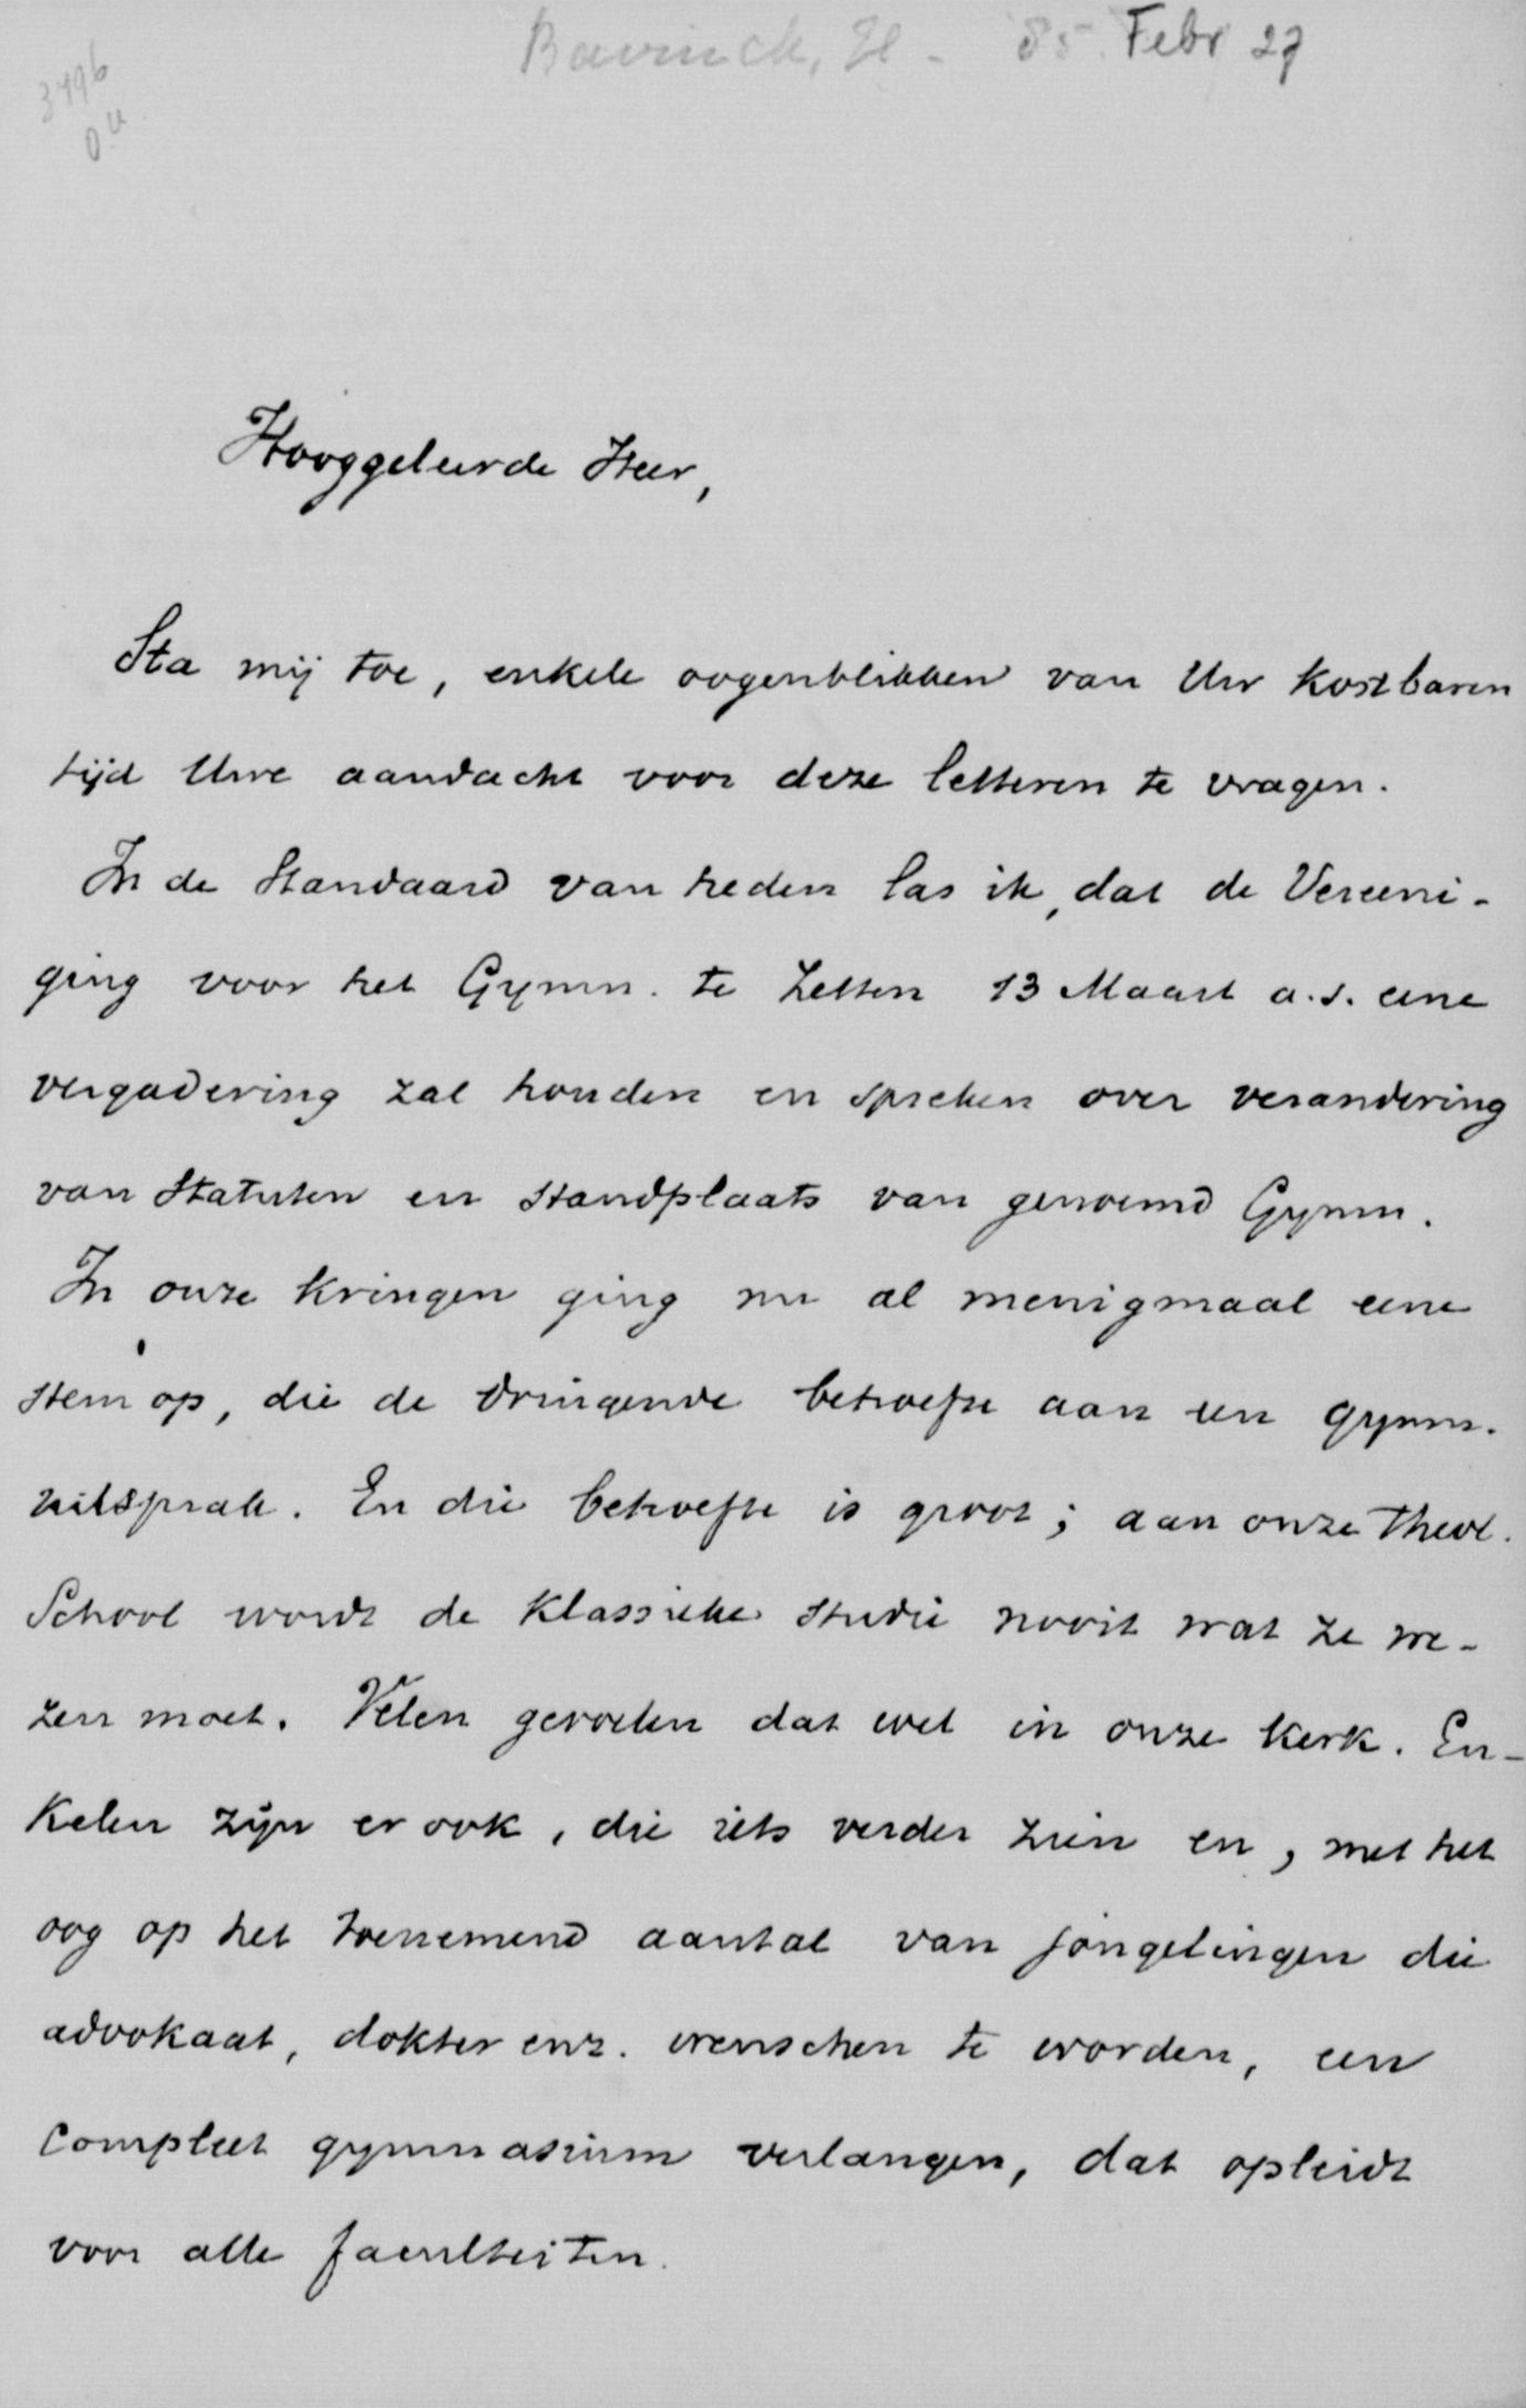 Bavinck, H - 85. Febr 27
3496
Hooggeleerde Heer,
Sta mij toe, enkele oogenblikken van Uw kostbaren
tijd Uwe aandacht voor deze letteren te vragen.
In de Standaard van heden las ik, dat de Vereeni-
ging voor het Gymn. te Zetten 13 Maart a.s. eene
vergadering zal houden en spreken over verandering
van Statuten en standplaats van genoemd Gymn.
In onze kringen ging nu al menigmaal eene
stem op, die de dringende behoefte aan een gymn.
uitsprak. En die behoefte is groot; aan onze Theol.
School wordt de klassieke studie nooit wat ze we-
zen moet. Velen gevoelen dat wel in onze kerk. En-
kelen zijn er ook, die iets verder zien en, met het
oog op het toenemend aantal van jongelingen die
advokaat, dokter enz. wenschen te worden, een
compleet gymnasium verlangen, dat opleidt
voor alle faculteiten.